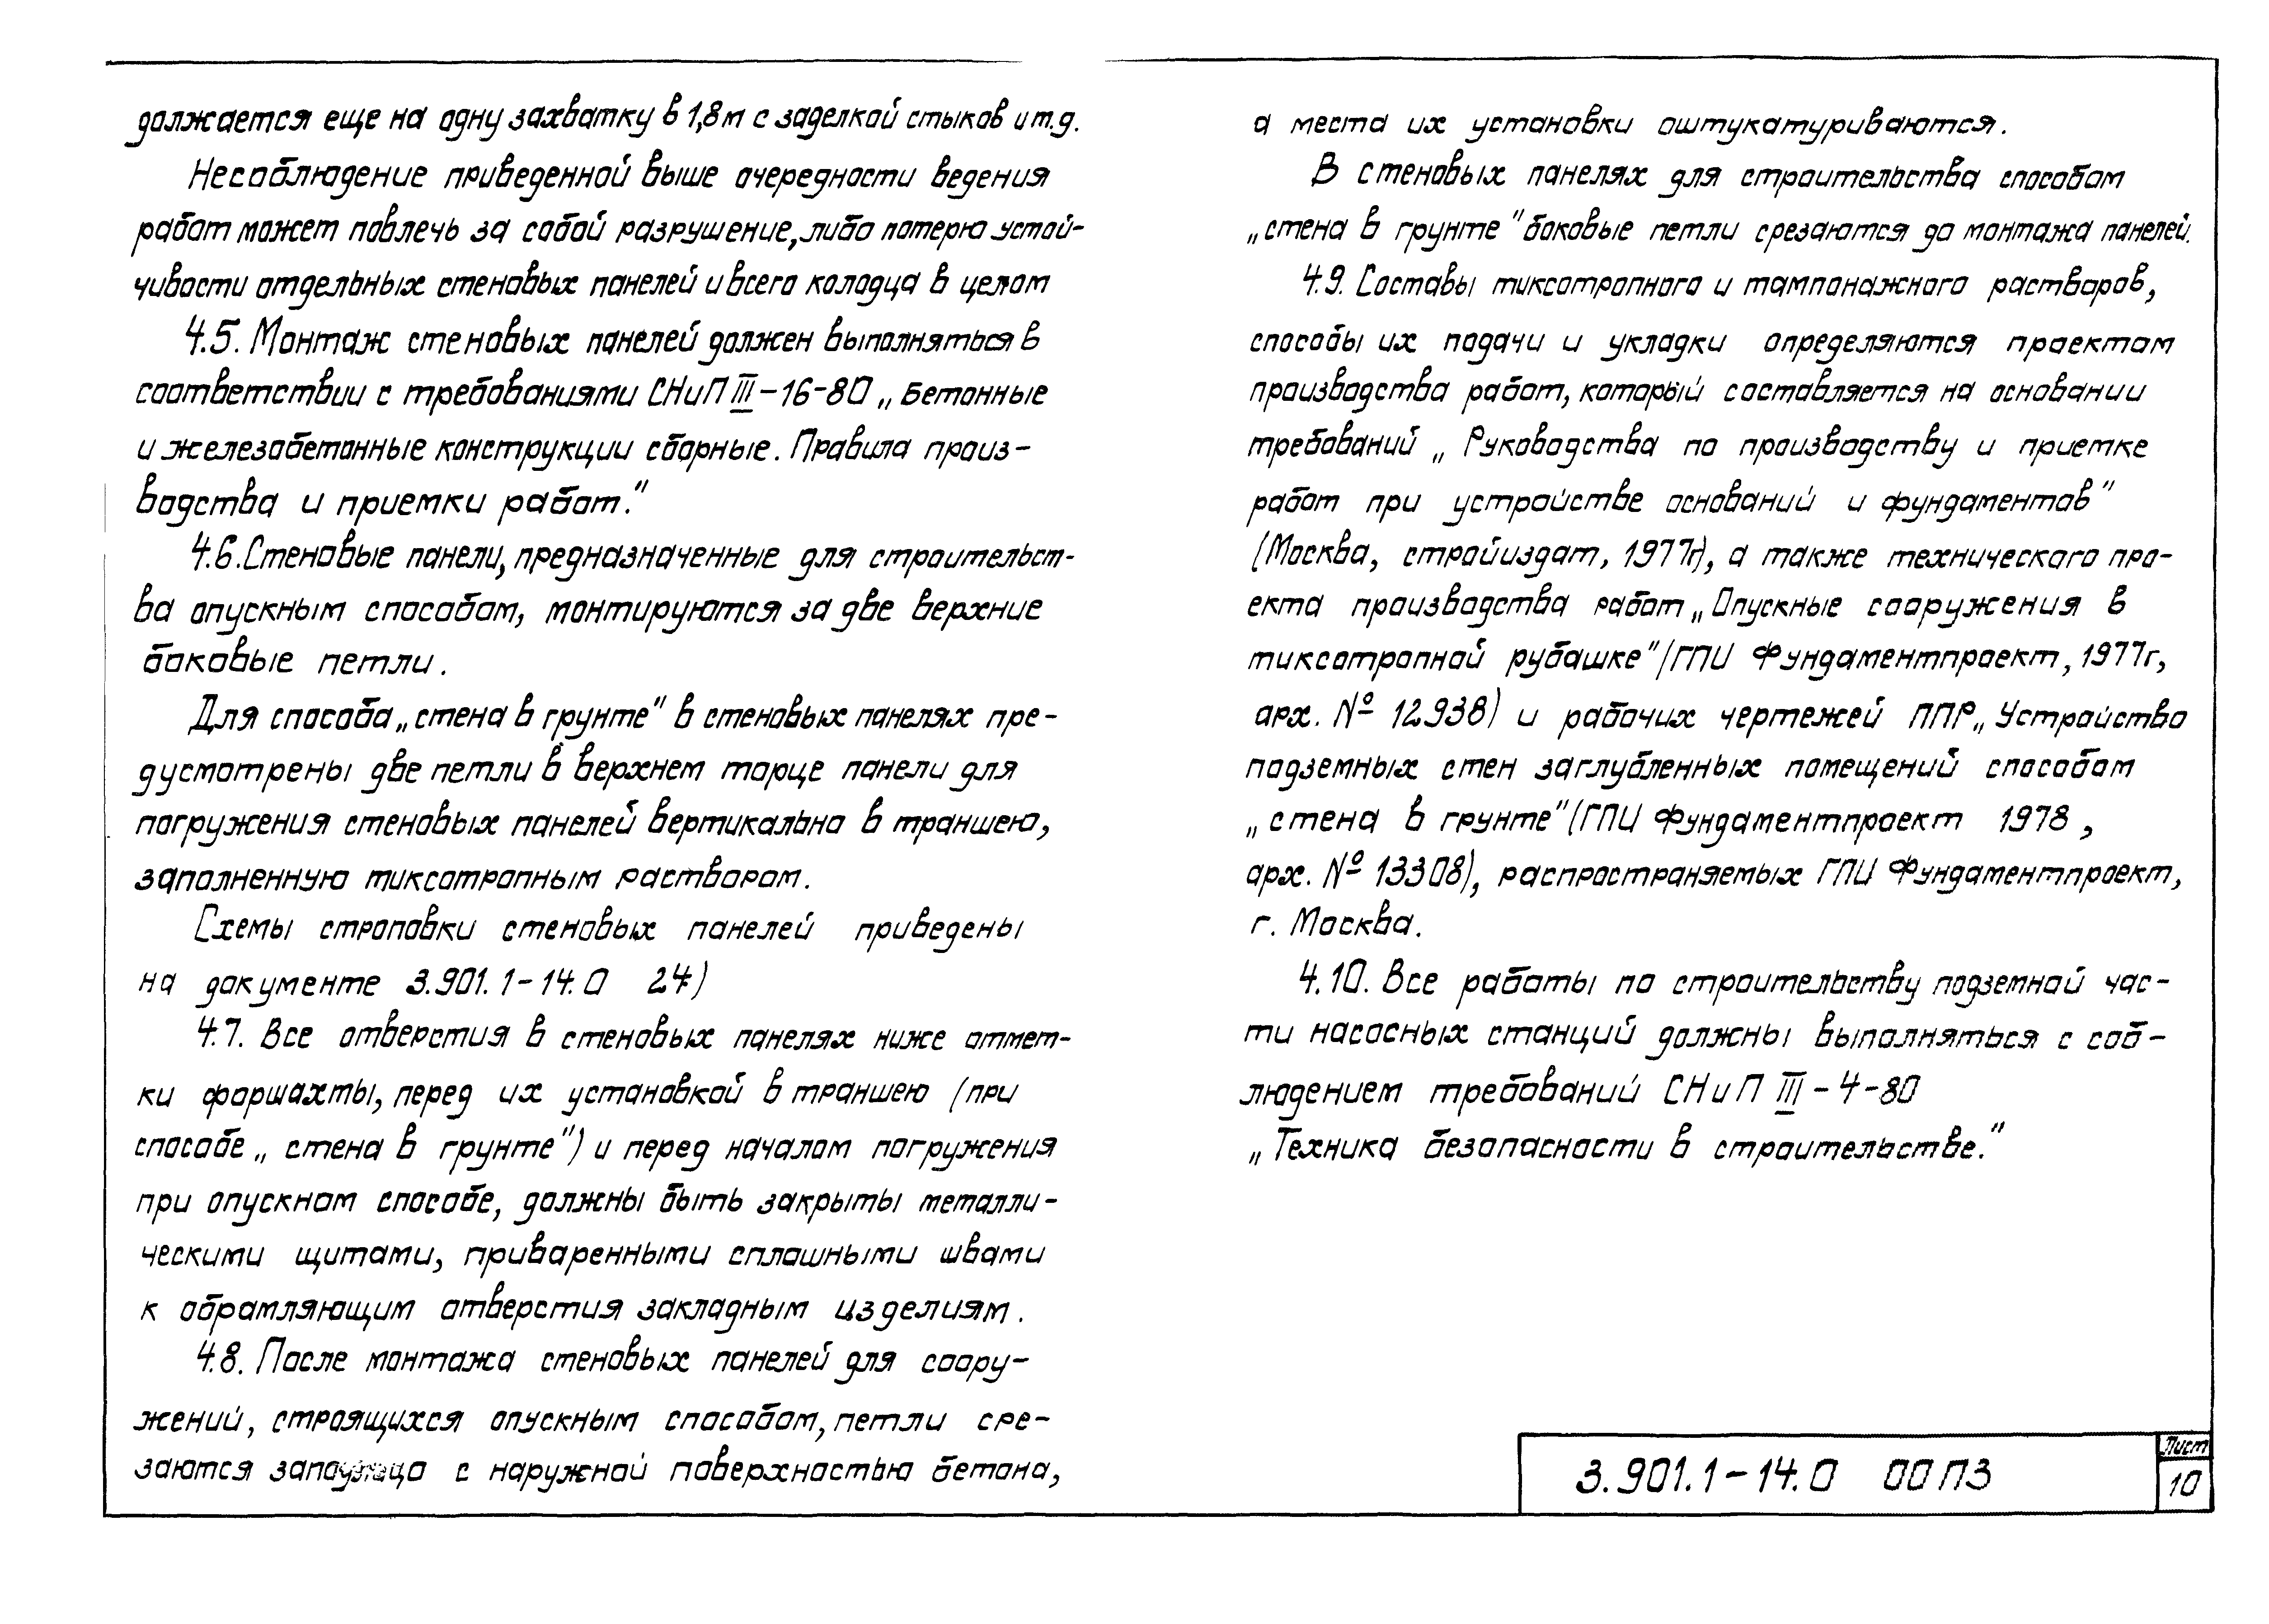 должается еще на одну захватку в 1,8м с заделкой стыков и т.д.
Несоблюдение приведенной выше очередности ведения
работ может повлечь за собой разрушение, либо потерю устой-
чивости отдельных стеновых панелей и всего колодца в целом
4.5. Монтаж стеновых панелей должен выполняться в
соответствии с требованиями СНиП III-16-80 „Бетонные
и железобетонные конструкции сборные. Правила произ-
водства и приемки работ."
4.6. Стеновые панели, предназначенные для строительст-
ва опускным способом, монтируются за две верхние
боковые петли.
Для способа „стена в грунте" в стеновых панелях пре-
дусмотрены две петли в верхнем торце панели для
погружения стеновых панелей вертикально в траншею,
заполненную тиксотропным раствором.
Схемы строповки стеновых панелей приведены
на документе 3.901.1-14.0 24)
4.7. Все отверстия в стеновых панелях ниже отмет-
ки форшахты, перед их установкой в траншею (при
способе „стена в грунте") и перед началом погружения
при опускном способе, должны быть закрыты металли-
ческими щитами, приваренными сплошными швами
к обрамляющим отверстия закладным изделиям.
4.8. После монтажа стеновых панелей для соору-
жений, строящихся опускным способом, петли сре-
заются заподлицо с наружной поверхностью бетона,
а места их установки оштукатуриваются.
В стеновых панелях для строительства способом
„стена в грунте" боковые петли срезаются до монтажа панелей.
4.9. Составы тиксотропного и тампонажного растворов,
способы их подачи и укладки определяются проектом
производства работ, который составляется на основании
требований „Руководства по производству и приемке
работ при устройстве оснований и фундаментов"
(Москва, стройиздат, 1977г), а также технического про-
екта производства работ „Опускные сооружения в
тиксотропной рубашке" (ГПИ Фундаментпроект, 1977г,
арх. № 12938) и рабочих чертежей ППР „Устройство
подземных стен заглубленных помещений способом
„стена в грунте" (ГПИ Фундаментпроект 1978,
арх. № 13308), распространяемых ГПИ Фундаментпроект,
г. Москва.
4.10. Все работы по строительству подземной час-
ти насосных станций должны выполняться с соб-
людением требований СНиП III-4-80
„Техника безопасности в строительстве."
3.901.1-14.0 00ПЗ
Лист
10